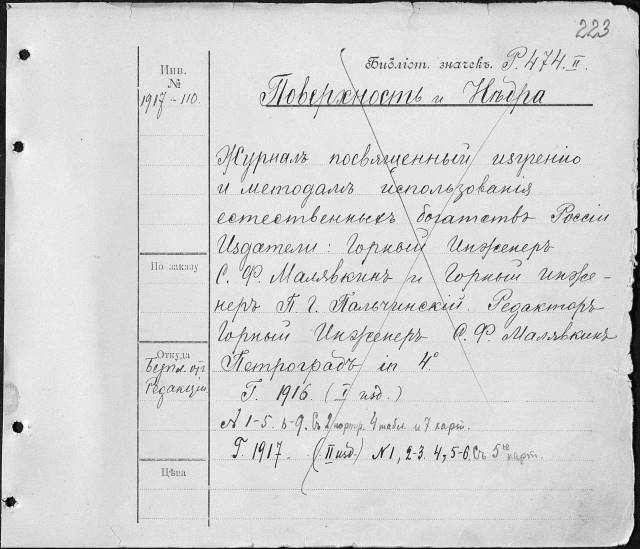 223
Библіот. значекъ. Р. 474. II.
Инв.
№
1917 - 110.
Поверхность и Нѣдра
Журналъ посвященный изученію
и методамъ использованія
естественныхъ богатствъ Россіи
Издатели: Горный Инженеръ
По заказу
С. Ф. Малявкинъ и Горный инже-
неръ П. І. Пальчинскій. Редакторъ
Горный Инженеръ С. Ф. Малявкинъ
Откуда
Безпл. отъ
Редакціи
Петроградъ in 4°
Г. 1916. (I изд.)
№ 1-5. 6-9. Съ 2 портр. 4 табл. и 7 карт.
Г. 1917. (II изд.) № 1, 2-3. 4, 5-6. Съ 5 карт.
Цѣна